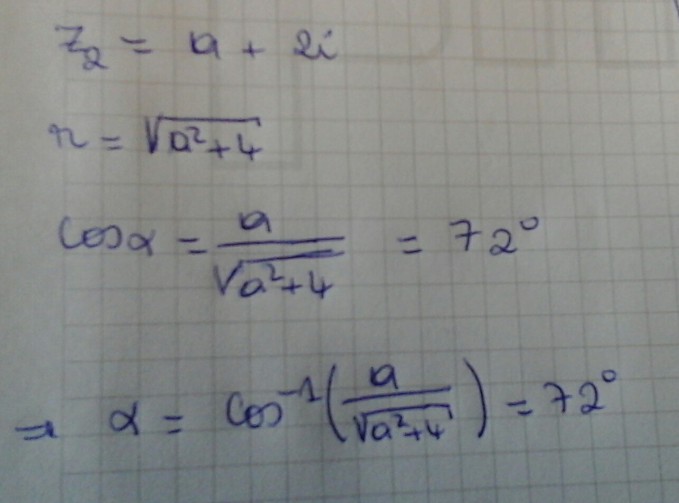 z₂ = a + 2i
r = √(a²+4)
cosα = a/√(a²+4) = 72°
⇒ α = cos⁻¹(a/√(a²+4)) = 72°